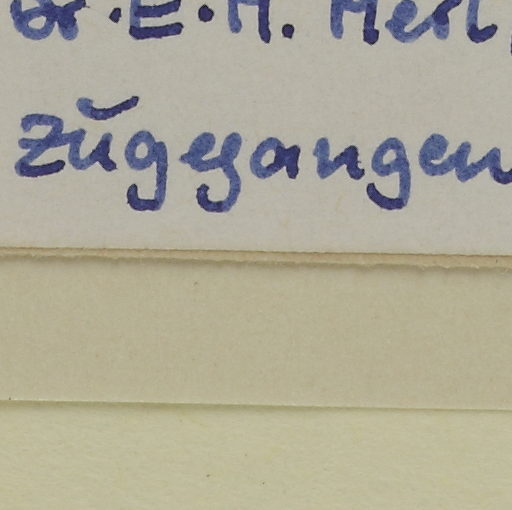 Dr. E. M. Merl
zugegangen